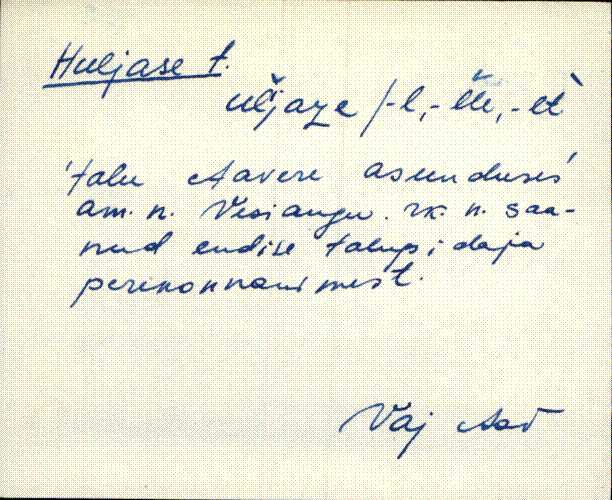 Huljase t.
uĺjaze /-l, -lle, -lt
'talu Aavere asunduses'
am. n. Vesiangu. rk. n. saa-
nud endise talupidaja
perekonnanimest.
Vaj